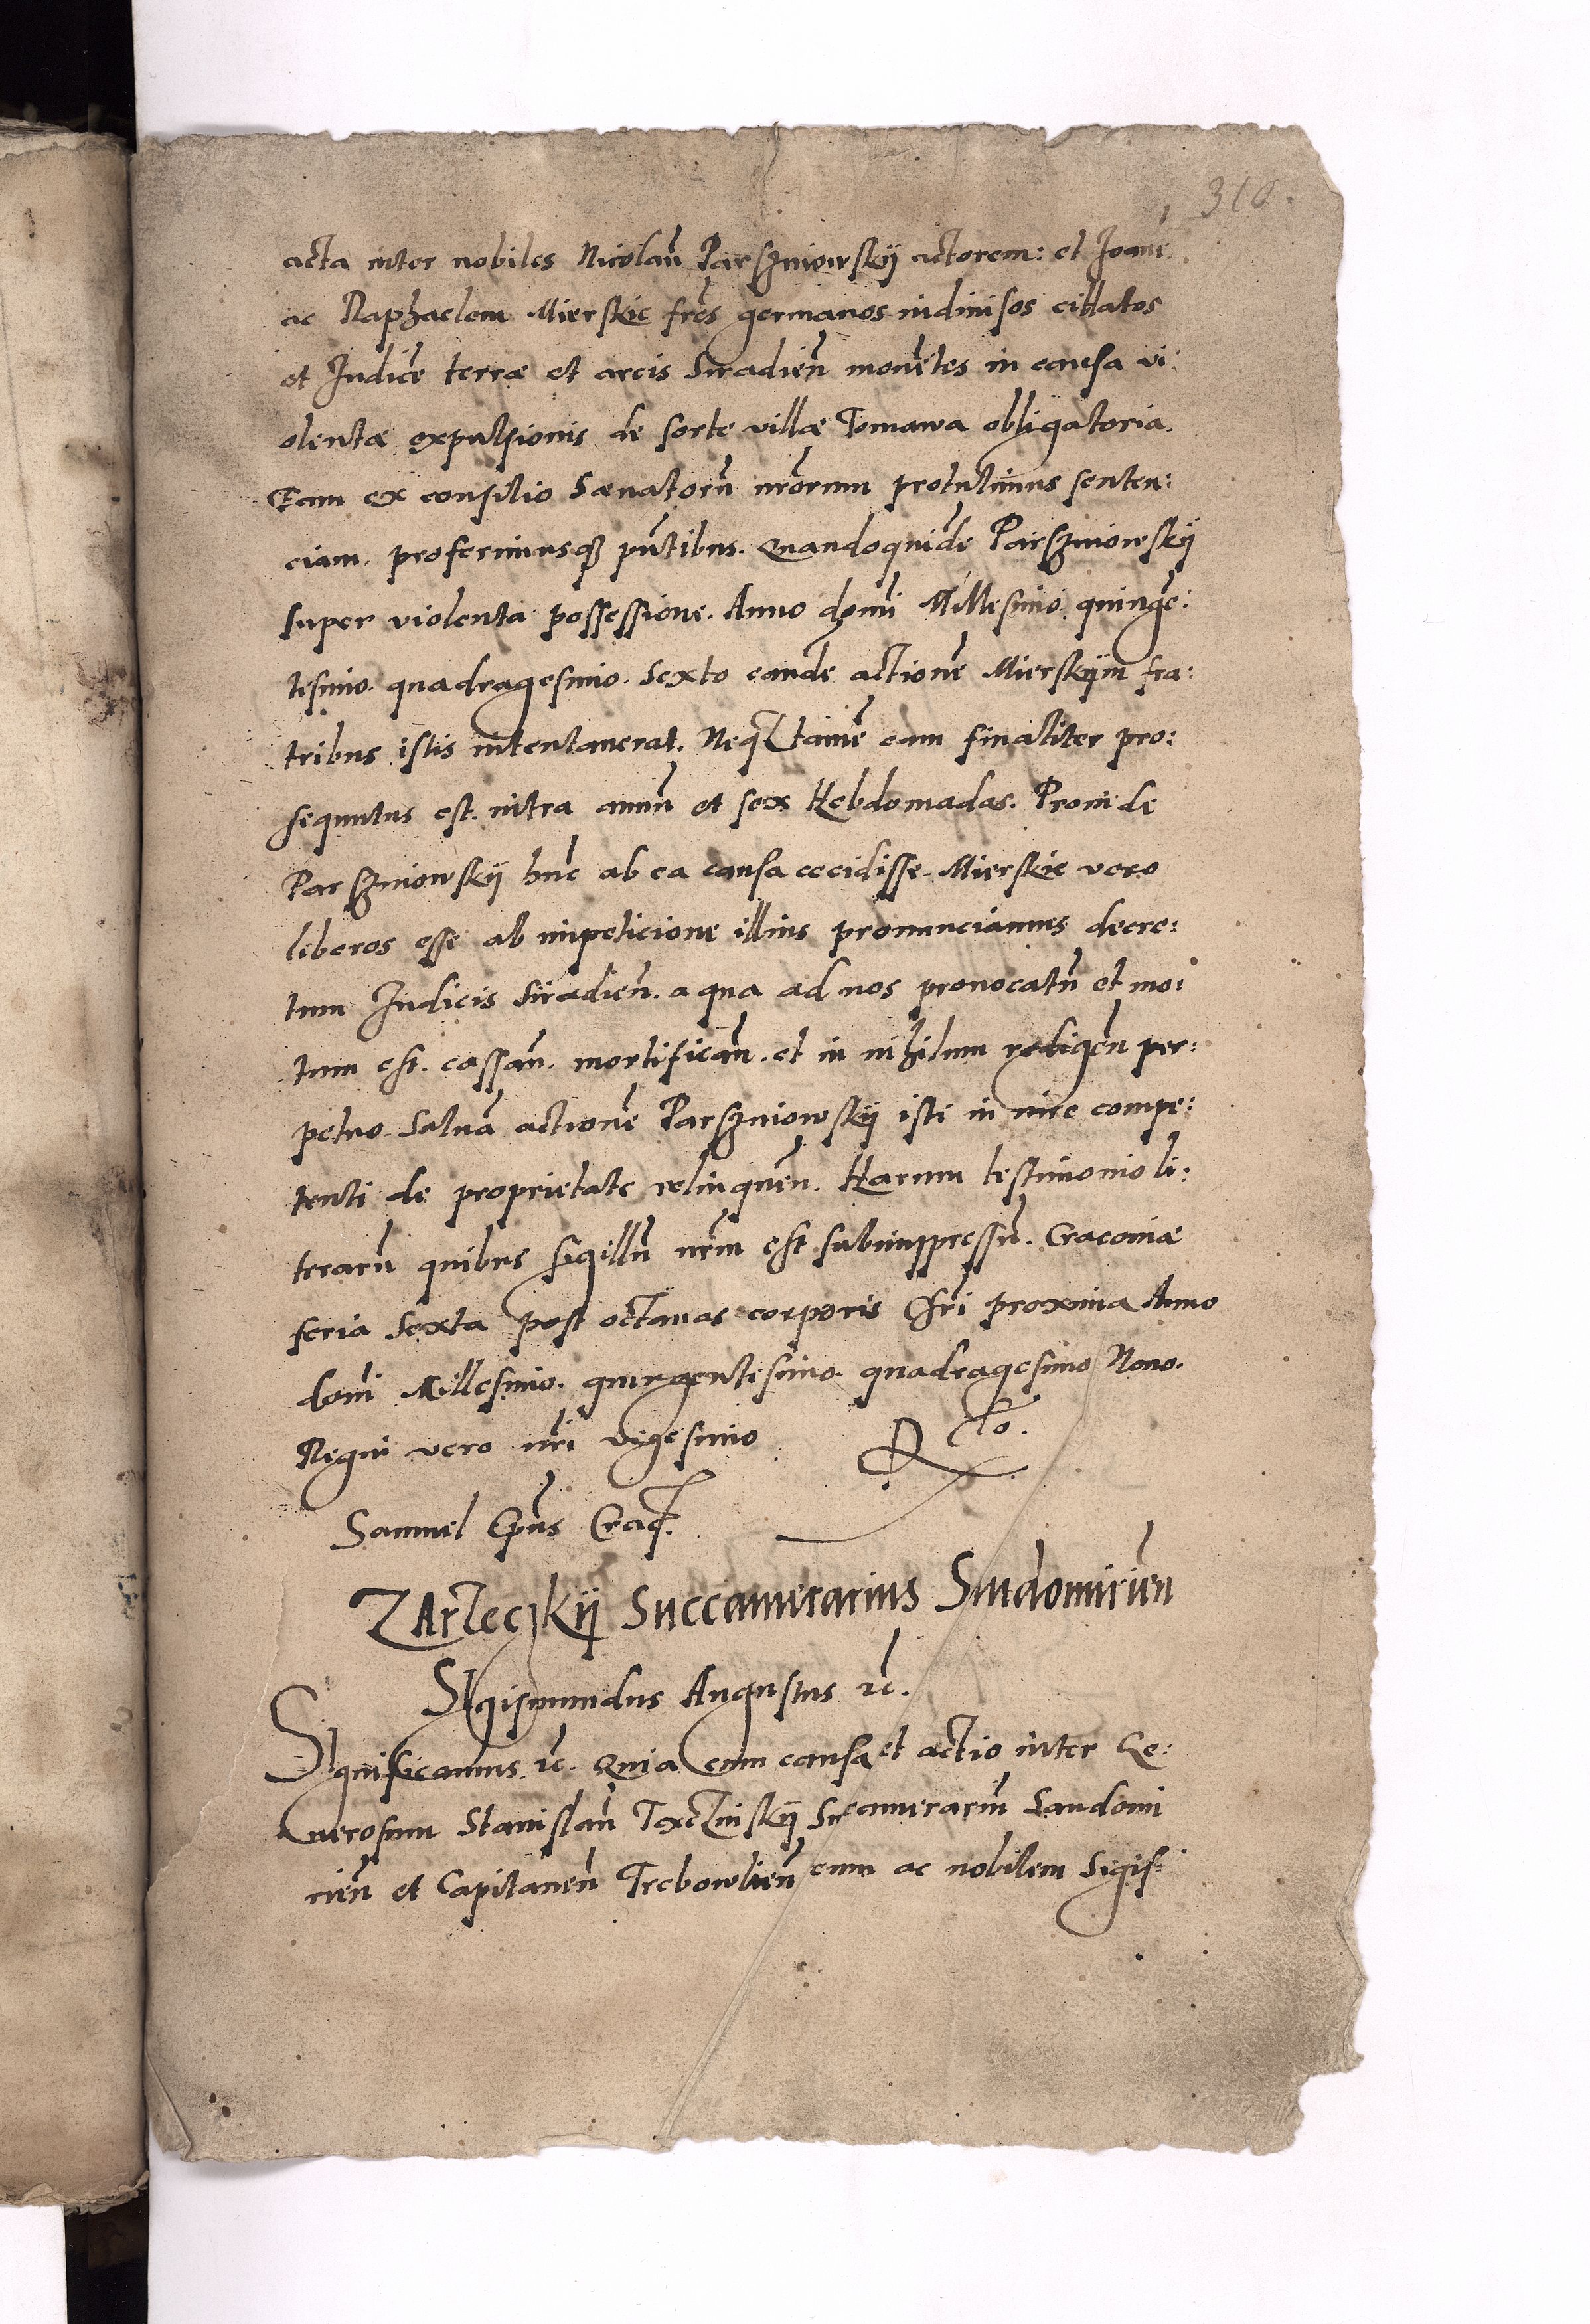 310.
acta inter nobiles Nicolaũ Parszniowskij actorem: et Joanẽ
ac Raphaelem Mierskie frẽs germanos indiuisos cittatos
et Judicẽ terræ et arcis Siradieñ mouẽtes in causa vi:
olentæ expulsionis de sorte villæ Tomawa obligatoria.
Eam ex consilio Sænatorũ nrõrum protulimus senten:
ciam. proferimusqȝ pñtibus. Quandoquidẽ Parsznìowskij
super violenta possessione. Anno domĩ Millesimo quingẽ:
tesimo quadragesimo Sexto eandẽ actionẽ Mierskijm fra:
tribus istis intentauerat. Neqȝ tamẽ eam finaliter pro:
sequutus est. intra annũ et sex Hebdomadas. Proinde
Parsznìowskij hũc ab ea causa cecidisse. Mierskie vero
liberos esse ab impeticione illius pronunciamus decre:
tum Judicis Siradieñ. a qua ad nos prouocatũ et mo:
tum est. cassañ. mortificañ. et in nihilum redigeñ per:
petuo. Saluã actionẽ Parsznìowskij isti in iure compe:
tenti de proprietate relinqueñ. Harum testimonio li:
terarũ quibus sigillũ nr̃m est subimppressũ. Cracouiæ
feria Sexta post octauas corporis Chrĩ proxima Anno
domĩ Millesimo. quingentesimo. quadragesimo Nono.
Regni vero nrĩ vigesimo Rcto.
Samuel Epũs Cracȝ.
Tarleczkij Succamerarius Sandomirieñ
Sigismundus Augustus ꝛc̃.
Significamus. ꝛc̃. Quia cum causa et actio inter Ge:
nerosum Stanislaũ Texczinskij Succamerariũ Sandomi
rieñ et Capitaneũ Trebowlieñ cum ac nobilem Sigis: